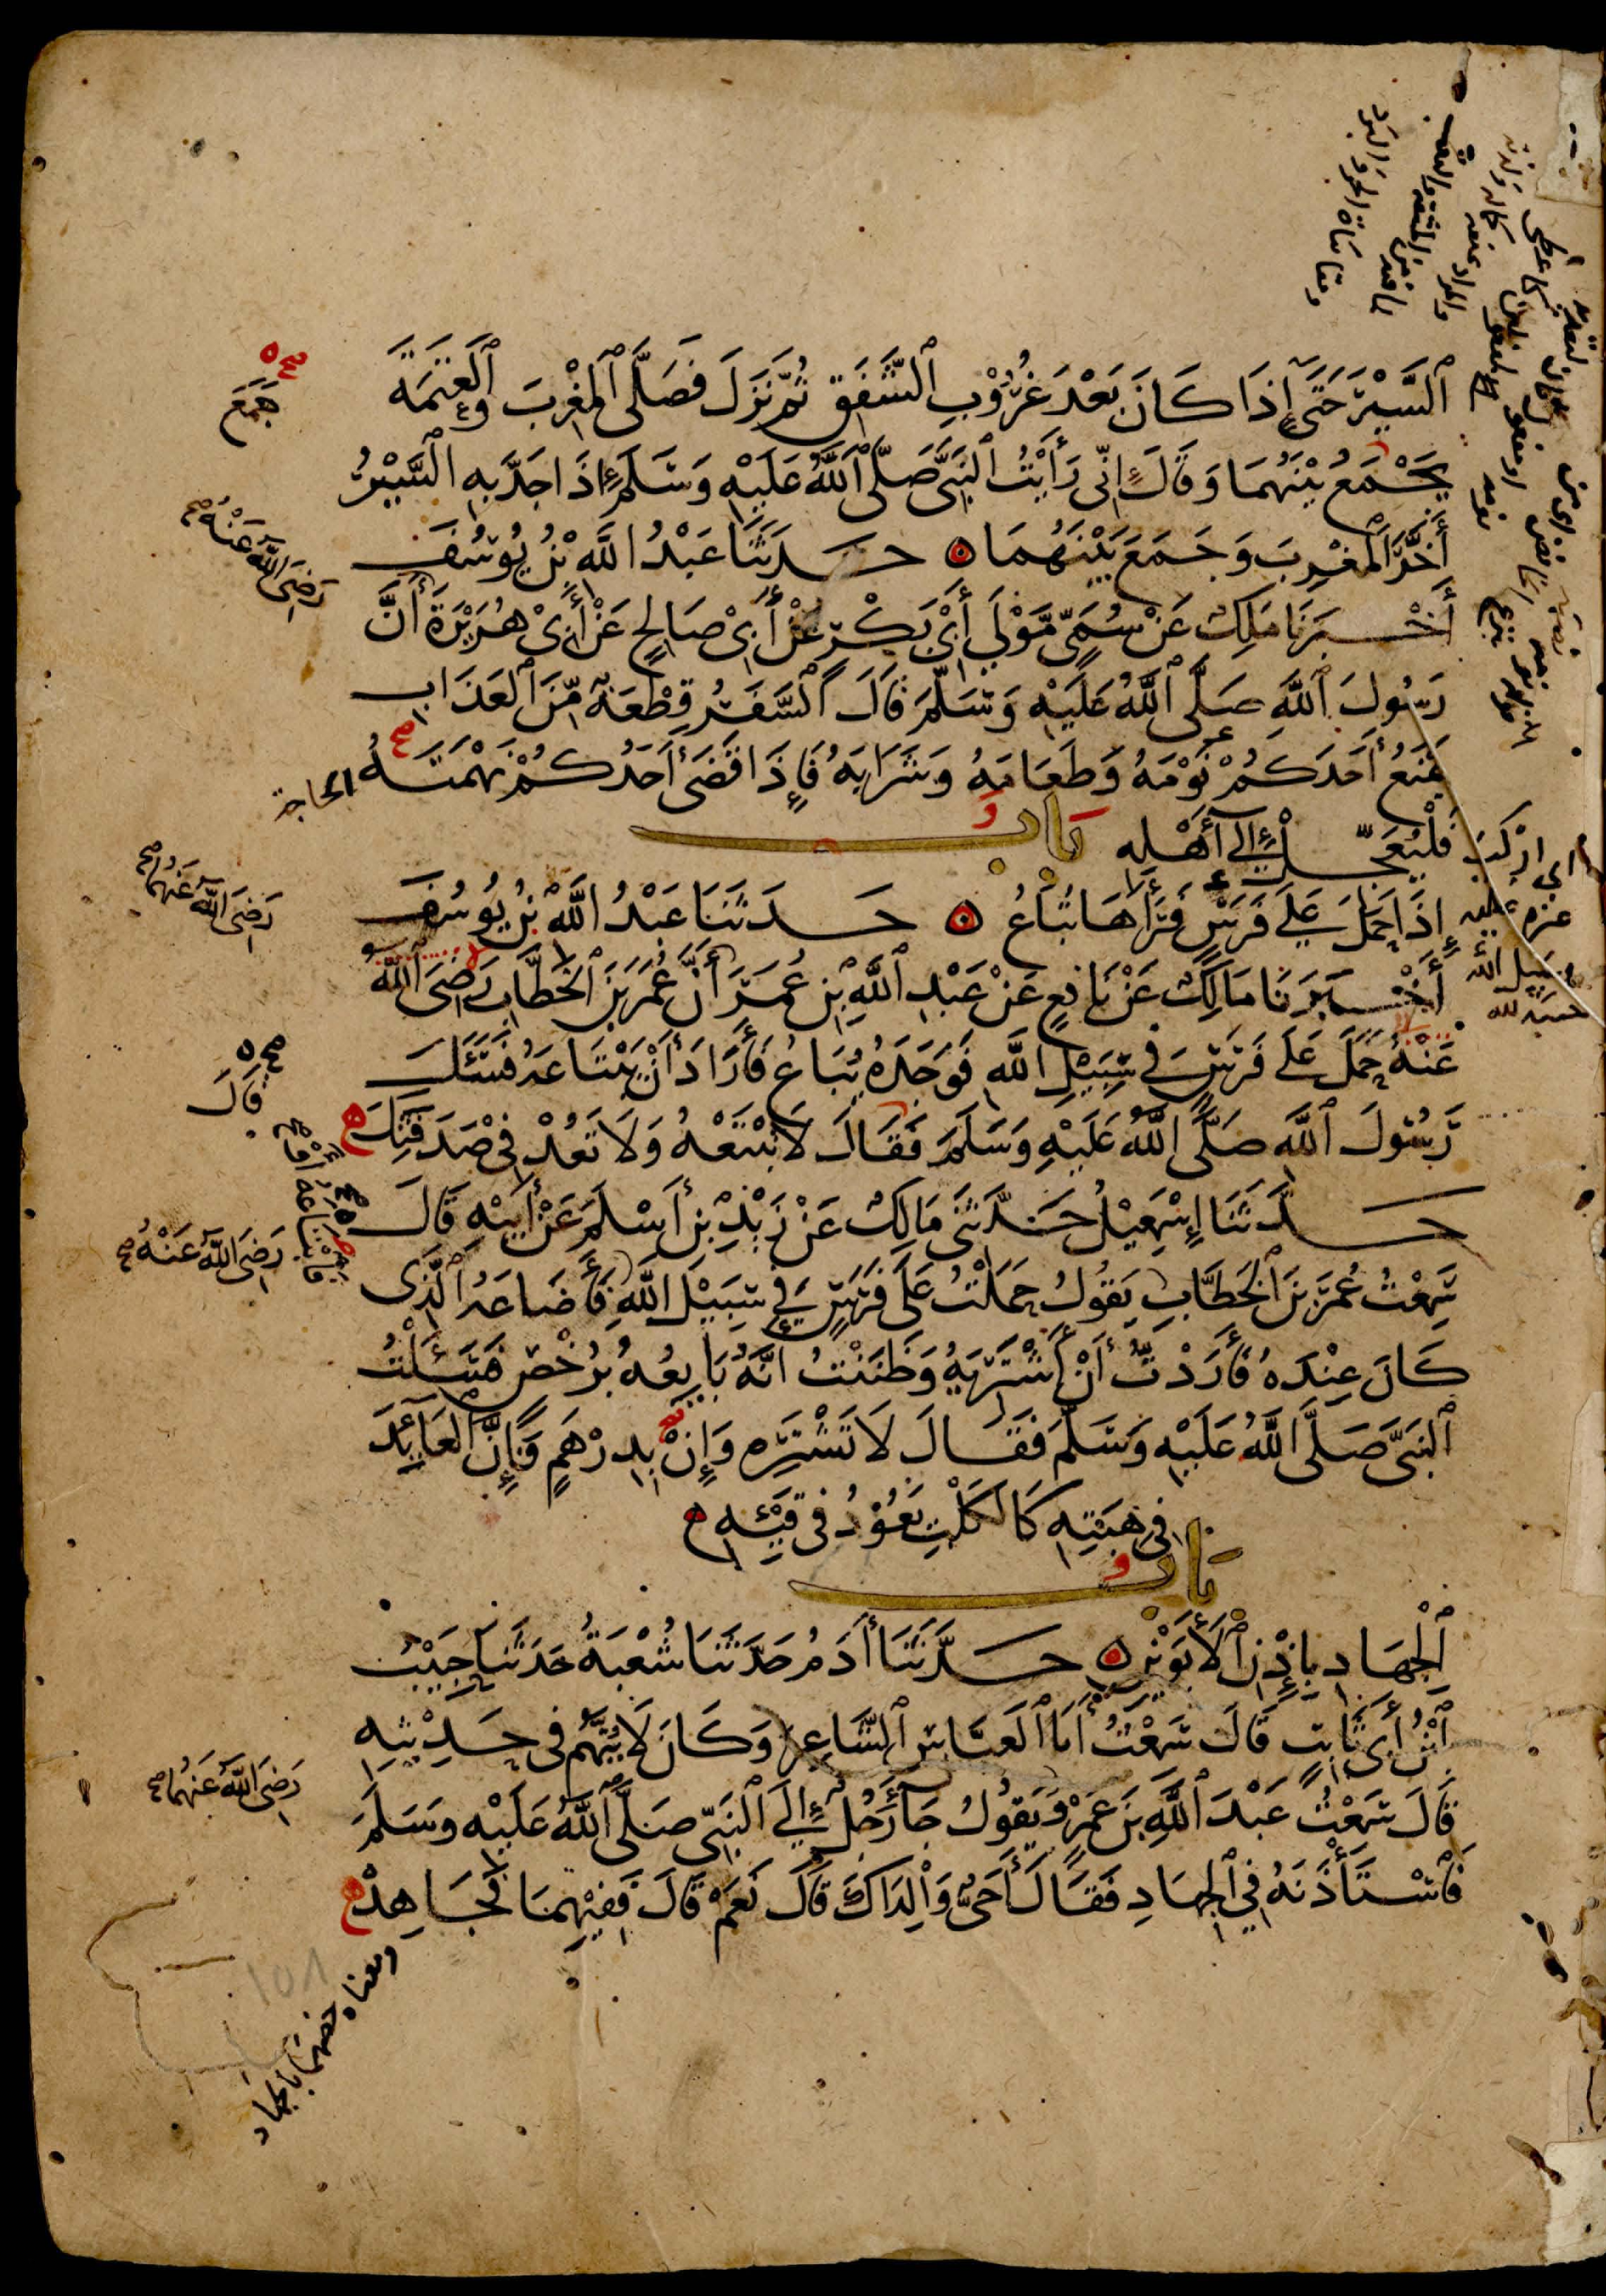 ٱلسَّيْرَ حَتَّىٰ إِذَا كَانَ بَعْدَ غُرُوْبِ ٱلشَّفَقِ ثُمَّ نَزَلَ فَصَلَّى ٱلْمَغْرِبَ وَٱلْعَتَمَةَ
جَمَعَ صح
يَجْمَعُ بَيْنَهُمَا وَقَالَ إِنِّى رَأَيْتُ ٱلنَّبِىَّ صَلَّى ٱللَّهُ عَلَيْهِ وَسَلَّمَ إِذَا جَدَّ بِهِ السَّيْرُ
أَخَّرَ ٱلْمَغْرِبَ وَجَمَعَ بَيْنَهُمَا ۞ حَدَّثَنَا عَبْدُ اللَّهِ بْنُ يُوسُفَ
رَضِىَ ٱللَّهُ عَنْهُ صح
أَخْبَرَنَا مَلِكٌ عَنْ سُمَىٍّ مَّوْلَى أَبِىْ بَكْرٍ عَنْ أَبِىْ صَالِحٍ عَنْ أَبِىْ هُرَيْرَةَ أَنَّ
رَسُولَ ٱللَّهِ صَلَّى ٱللَّهُ عَلَيْهِ وَسَلَّمَ قَالَ ٱلسَّفَرُ قِطْعَةٌ مِّنَ ٱلْعَذَابِ
يَمْنَعُ أَحَدَكُمْ نَوْمَهُ وَطَعَامَهُ وَشَرَابَهُ فَإِذَا قَضَىٰ أَحَدُكُمْ نَهْمَتَهُ
الحاجة
فَلْيُعَجِّلْ إِلَىٰ أَهْلِهِ بَابٌ
إِذَا حَمَلَ عَلَىٰ فَرَسٍ فَرَآهَا تُبَاعُ ۞ حَدَّثَنَا عَبْدُ اللَّهِ بْنُ يُوسُفَ
رَضِىَ ٱللَّهُ عَنْهُمَا صح
أَخْبَرَنَا مَالِكٌ عَنْ نَافِعٍ عَنْ عَبْدِ ٱللَّهِ بْنِ عُمَرَ أَنَّ عُمَرَ بْنَ ٱلْخَطَّابِ رَضِىَ ٱللَّهُ
عَنْهُ حَمَلَ عَلَىٰ فَرَسٍ فِى سَبِيْلِ اللَّهِ فَوَجَدَهُ يُبَاعُ فَأَرَادَ أَنْ يَبْتَاعَهُ فَسَئَلَ
رَسُولَ ٱللَّهِ صَلَّى اللَّهُ عَلَيْهِ وَسَلَّمَ فَقَالَ لَا تَبْتَعْهُ وَلَا تَعُدْ فِىْ صَدَقَتِكَ
قَالَ صح
حَدَّثَنَا إِسْمٰعِيْلُ حَدَّثَنِى مَالِكٌ عَنْ زَيْدِ بْنِ أَسْلَمَ عَنْ أَبِيْهِ قَالَ
رَضِىَ ٱللَّهُ عَنْهُ صح
سَمِعْتُ عُمَرَ بْنَ ٱلْخَطَّابِ يَقُولُ حَمَلْتُ عَلَىٰ فَرَسٍ فِى سَبِيْلِ اللَّهِ فَأَضَاعَهُ ٱلَّذِى
كَانَ عِنْدَهُ فَأَرَدْتُّ أَنْ أَشْتَرِيَهُ وَظَنَنْتُ أَنَّهُ بَائِعُهُ بِرُخْصٍ فَسَئَلْتُ
ٱلنَّبِىَّ صَلَّى اللَّهُ عَلَيْهِ وَسَلَّمَ فَقَالَ لَا تَشْتَرِهِ وَإِنْ بِدِرْهَمٍ فَإِنَّ ٱلْعَائِدَ
فِى هِبَتِهِ كَالْكَلْبِ يَعُوْدُ فِى قَيْئِهِ
بَابُ
ٱلْجِهَادِ بِإِذْنِ ٱلْأَبَوَيْنِ ۞ حَدَّثَنَا أٰدَمُ حَدَّثَنَا شُعْبَةُ حَدَّثَنَا حَبِيْبُ
ٱبْنُ أَبِى ثَابِتٍ قَالَ سَمِعْتُ أَبَا ٱلْعَبَّاسِ ٱلشَّاعِرَ وَكَانَ لَا يُتَّهَمُ فِى حَدِيْثِهِ
رَضِىَ ٱللَّهُ عَنْهُمَا صح
قَالَ سَمِعْتُ عَبْدَ ٱللَّهِ بْنَ عَمْرٍو يَقُوْلُ جَآءَ رَجُلٌ إِلَى ٱلنَّبِىِّ صَلَّى ٱللَّهُ عَلَيْهِ وَسَلَّمَ
فَٱسْتَأْذَنَهُ فِى ٱلْجِهَادِ فَقَالَ أَحَىٌّ وَالِدَاكَ قَالَ نَعَمْ قَالَ فَفِيْهِمَا فَجَاهِدْ
ومعناه خصهما بالجهاد
١٥٨